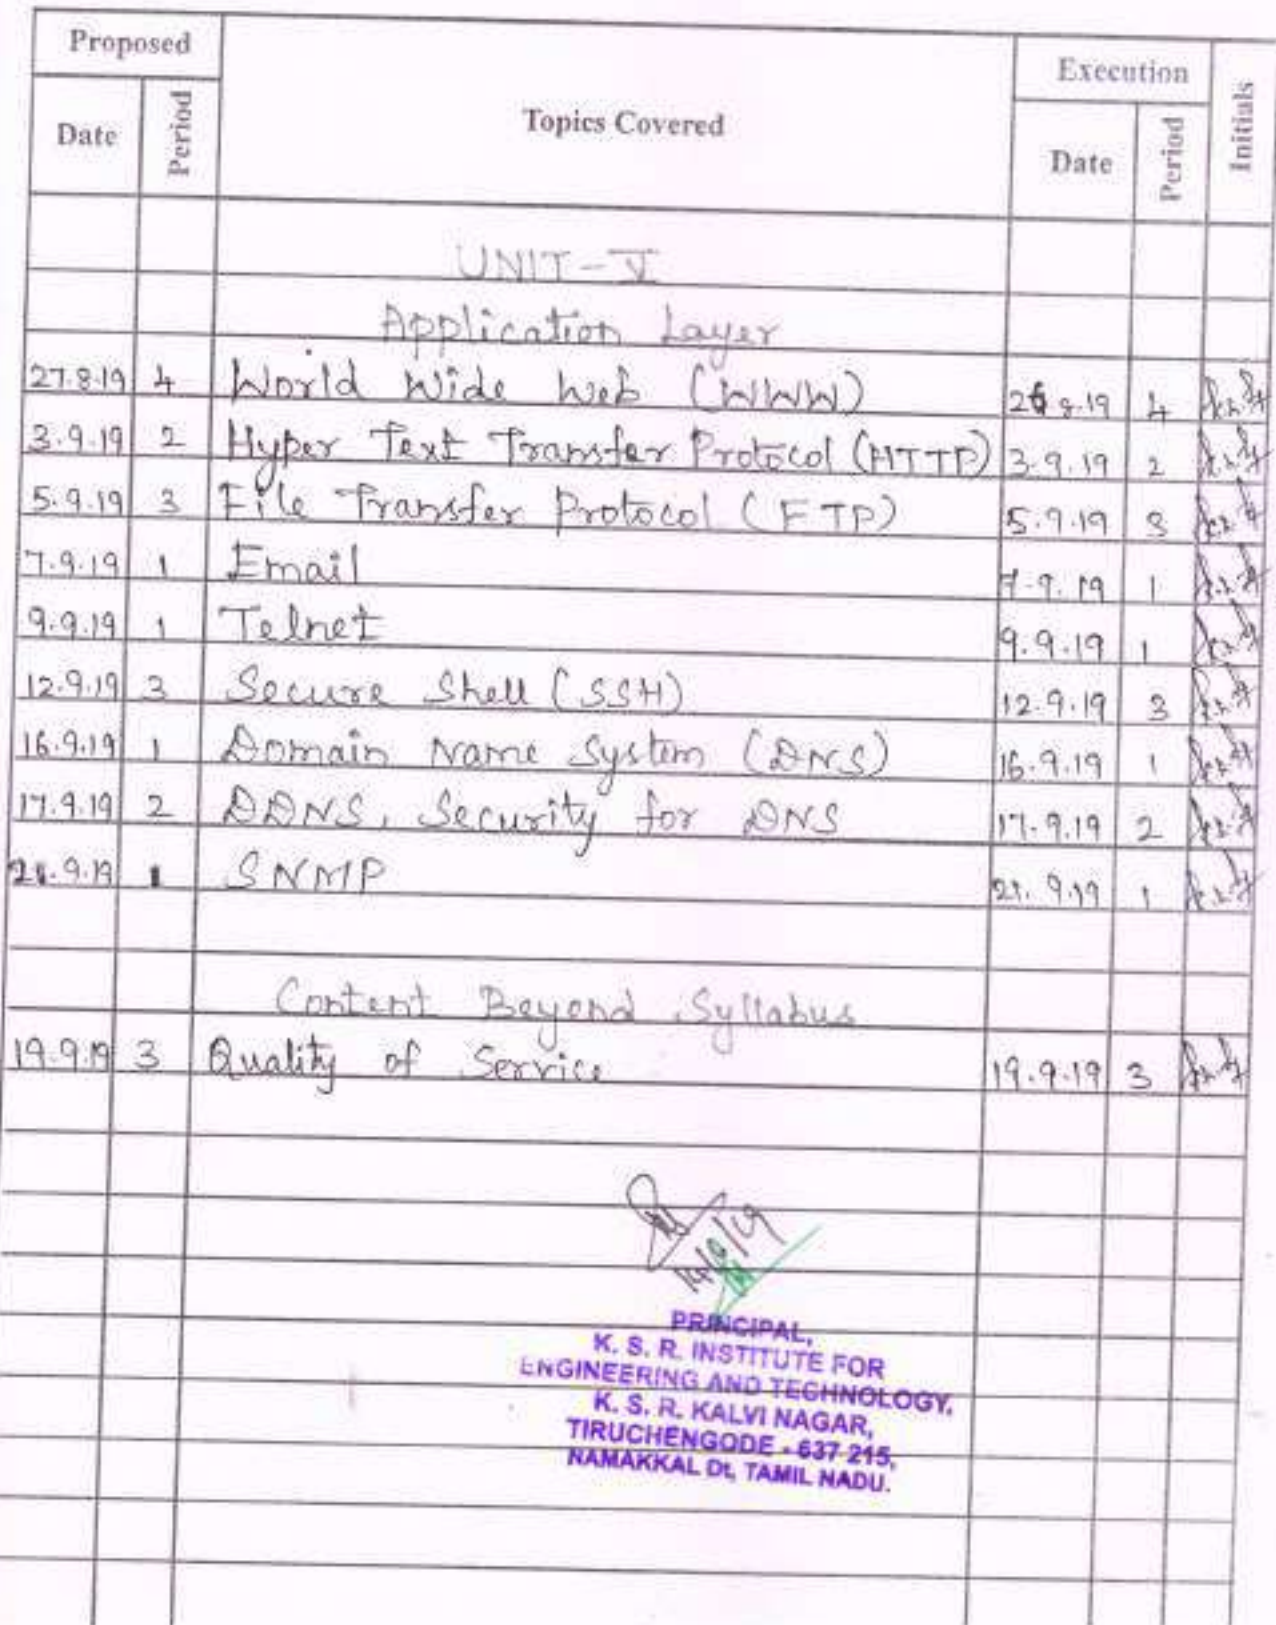 Proposed Execution
Date Period Topics Covered Date Period Initials
UNIT - V
Application Layer
27.8.19 4 World Wide Web (WWW) 8.19 4
3.9.19 2 Hyper Text Transfer Protocol (HTTP) 3.9.19 2
5.9.19 3 File Transfer Protocol (FTP) 5.9.19 3
7.9.19 1 Email 7.9.19 1
9.9.19 1 Telnet 9.9.19 1
12.9.19 3 Secure Shell (SSH) 12.9.19 3
16.9.19 1 Domain Name System (DNS) 16.9.19 1
17.9.19 2 DDNS, Security for DNS 17.9.19 2
21.9.19 1 SNMP 21.9.19 1
Content Beyond Syllabus
19.9.19 3 Quality of Service 19.9.19 3
PRINCIPAL,
K. S. R. INSTITUTE FOR
ENGINEERING AND TECHNOLOGY,
K. S. R. KALVI NAGAR,
TIRUCHENGODE - 637 215,
NAMAKKAL Dt, TAMIL NADU.